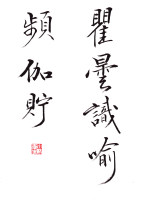 瞿曇識喻
頻伽貯